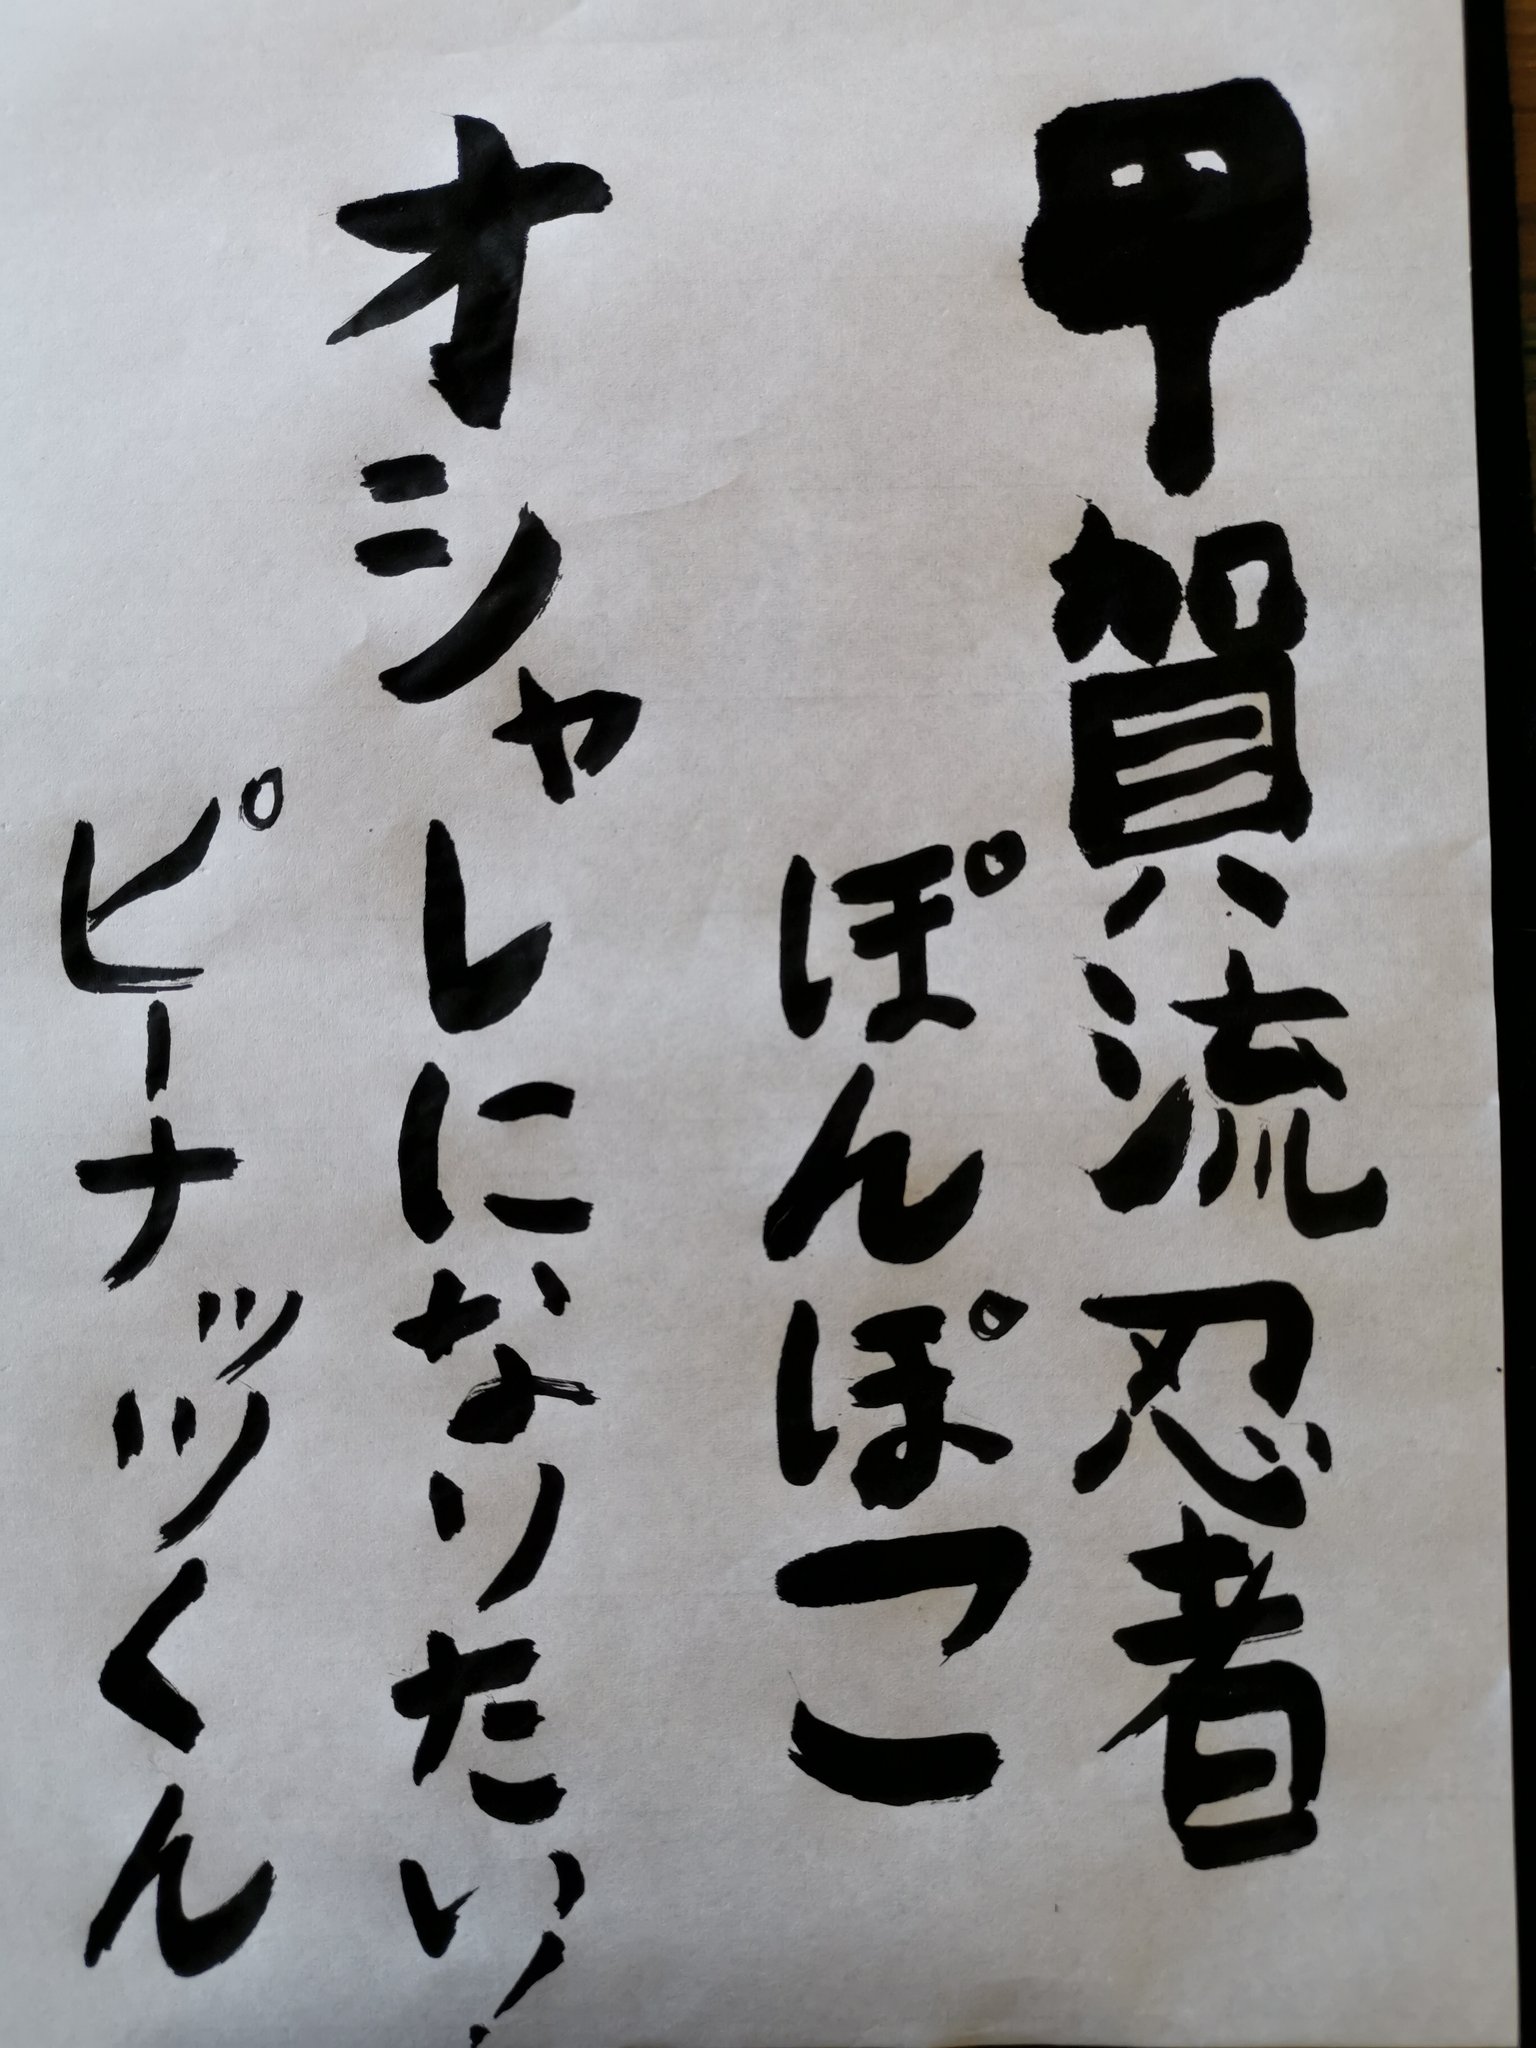 甲賀流忍者
ぽんぽこ
オシャレになりたい!
ピーナッツくん